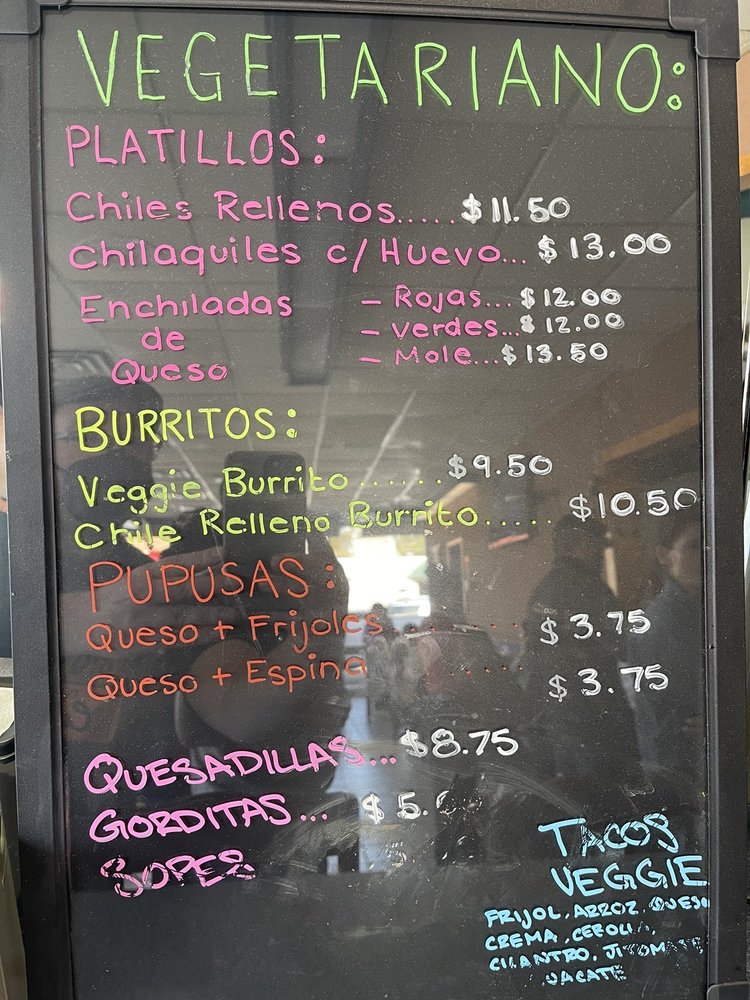 VEGETARIANO:
PLATILLOS:
Chiles Rellenos..... $11.50
Chilaquiles c/Huevo... $13.00
Enchiladas de Queso
- Rojas... $12.00
- verdes... $12.00
- Mole... $13.50
BURRITOS:
Veggie Burrito ...... $9.50
Chile Relleno Burrito..... $10.50
PUPUSAS:
Queso + Frijoles ..... $3.75
Queso + Espina ..... $3.75
QUESADILLAS... $8.75
GORDITAS... $5.
SOPES
TACOS
VEGGIE
FRIJOL, ARROZ, QUESO
CREMA, CEBOLL,
CILANTRO, JITOMATE